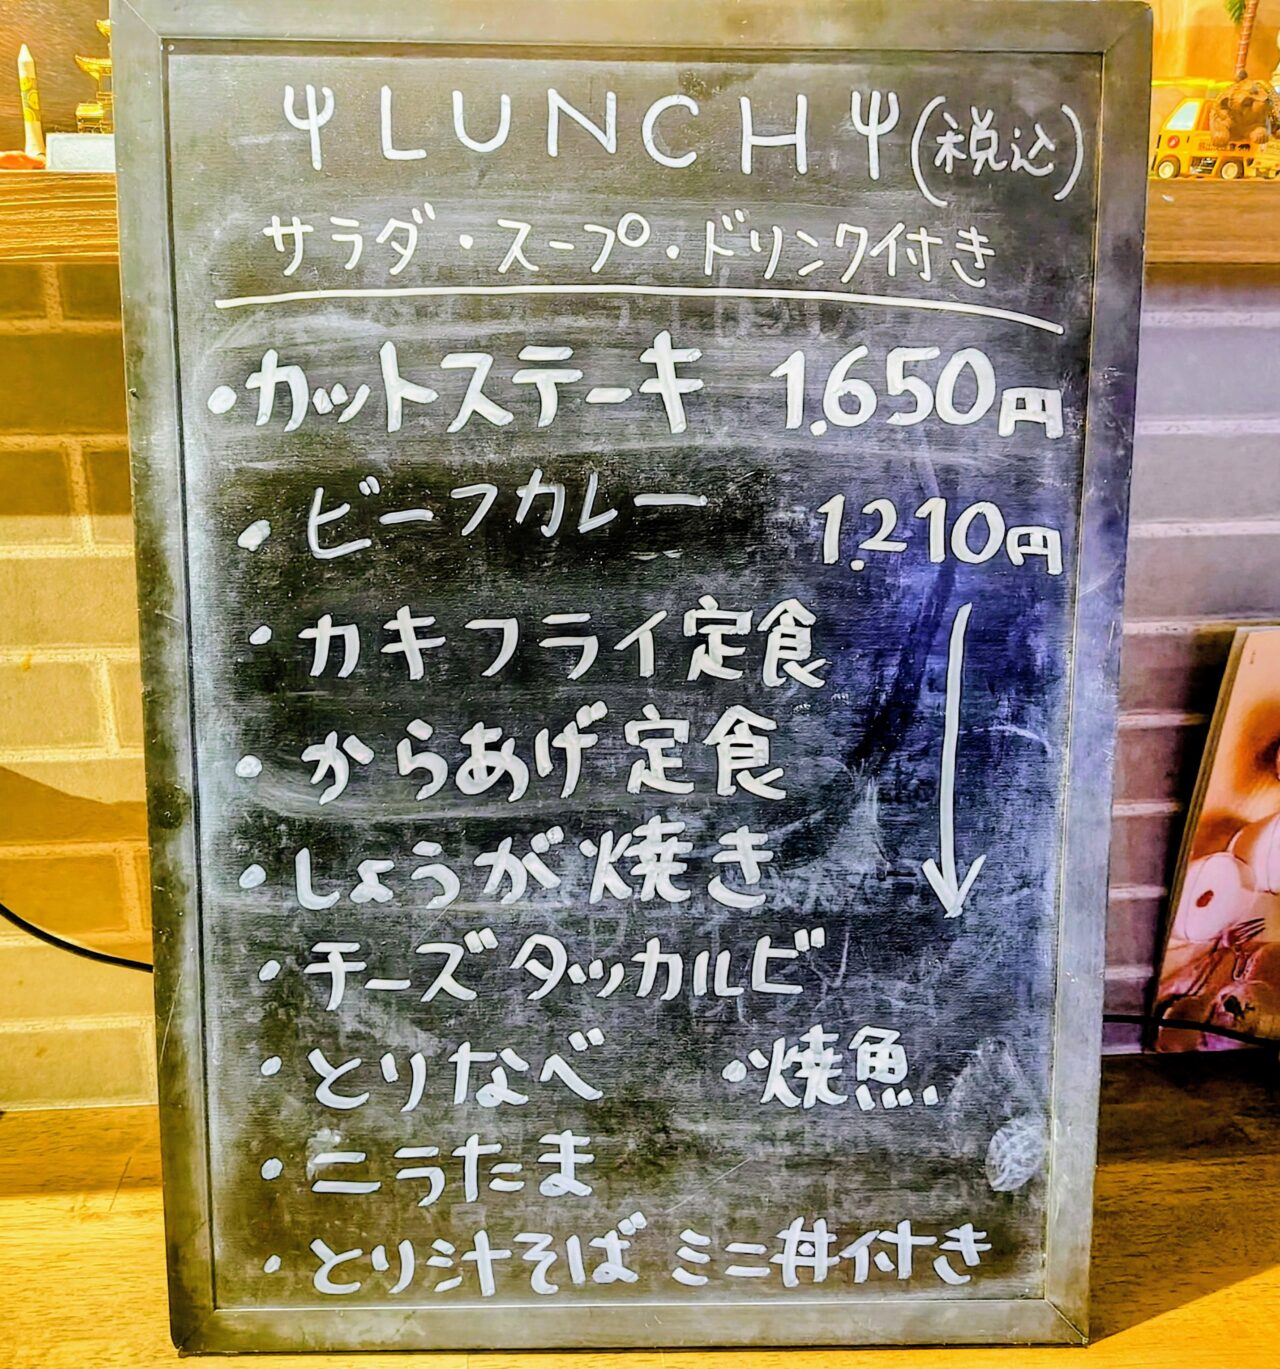 LUNCH (税込)
サラダ・スープ・ドリンク付き
・カットステーキ 1.650円
・ビーフカレー 1.210円
・カキフライ定食
・からあげ定食
・しょうが焼き
・チーズタッカルビ
・とりなべ ・焼魚
・ニラたま
・とり汁そば ミニ丼付き